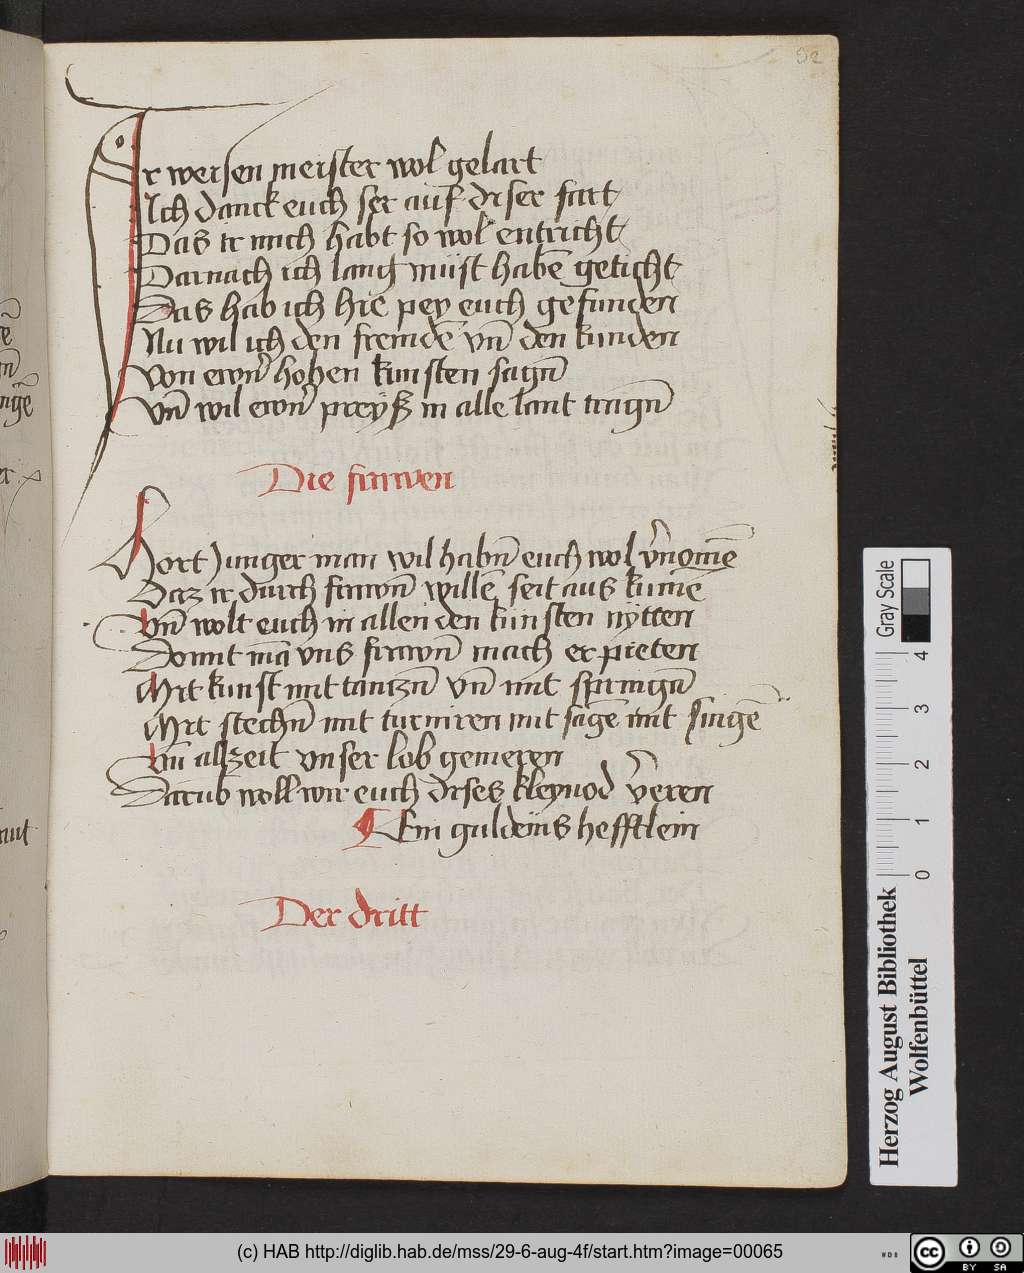 52
Ir weisen meister wol gelart
Ich danck euch ser auf diser fart
Das ir mich habt so wol entricht
Darnach ich lang müst habē geticht
Das hab ich hie pey euch gefunden
Nu wil ich den fremdē vn̄ den kunden
Von ewrn̄ hohen kunsten sagn̄
Vn̄ wil ewrn̄ preyß in alle lant tragn̄
Die frawen
Hort Junger man wil habn̄ euch wol v̄nomē
Daz ir durch frawn̄ willē seit aus kumē
Vn̄ wolt euch in allen den künsten nÿtten
Domit mā vns frawn̄ mach er pieten
Mit kunst mit tantzn̄ vn̄ mit springn̄
Mit stechn̄ mit turniren mit sagē mit singē
Vn̄ allzeit vnser lob gemeren
Darūb woll wir euch dises kleynod v̄eren
Ein guldeins hefftlein
Der dritt
Gray Scale
0 1 2 3 4
Herzog August Bibliothek
Wolfenbüttel
(c) HAB http://diglib.hab.de/mss/29-6-aug-4f/start.htm?image=00065
cc BY SA